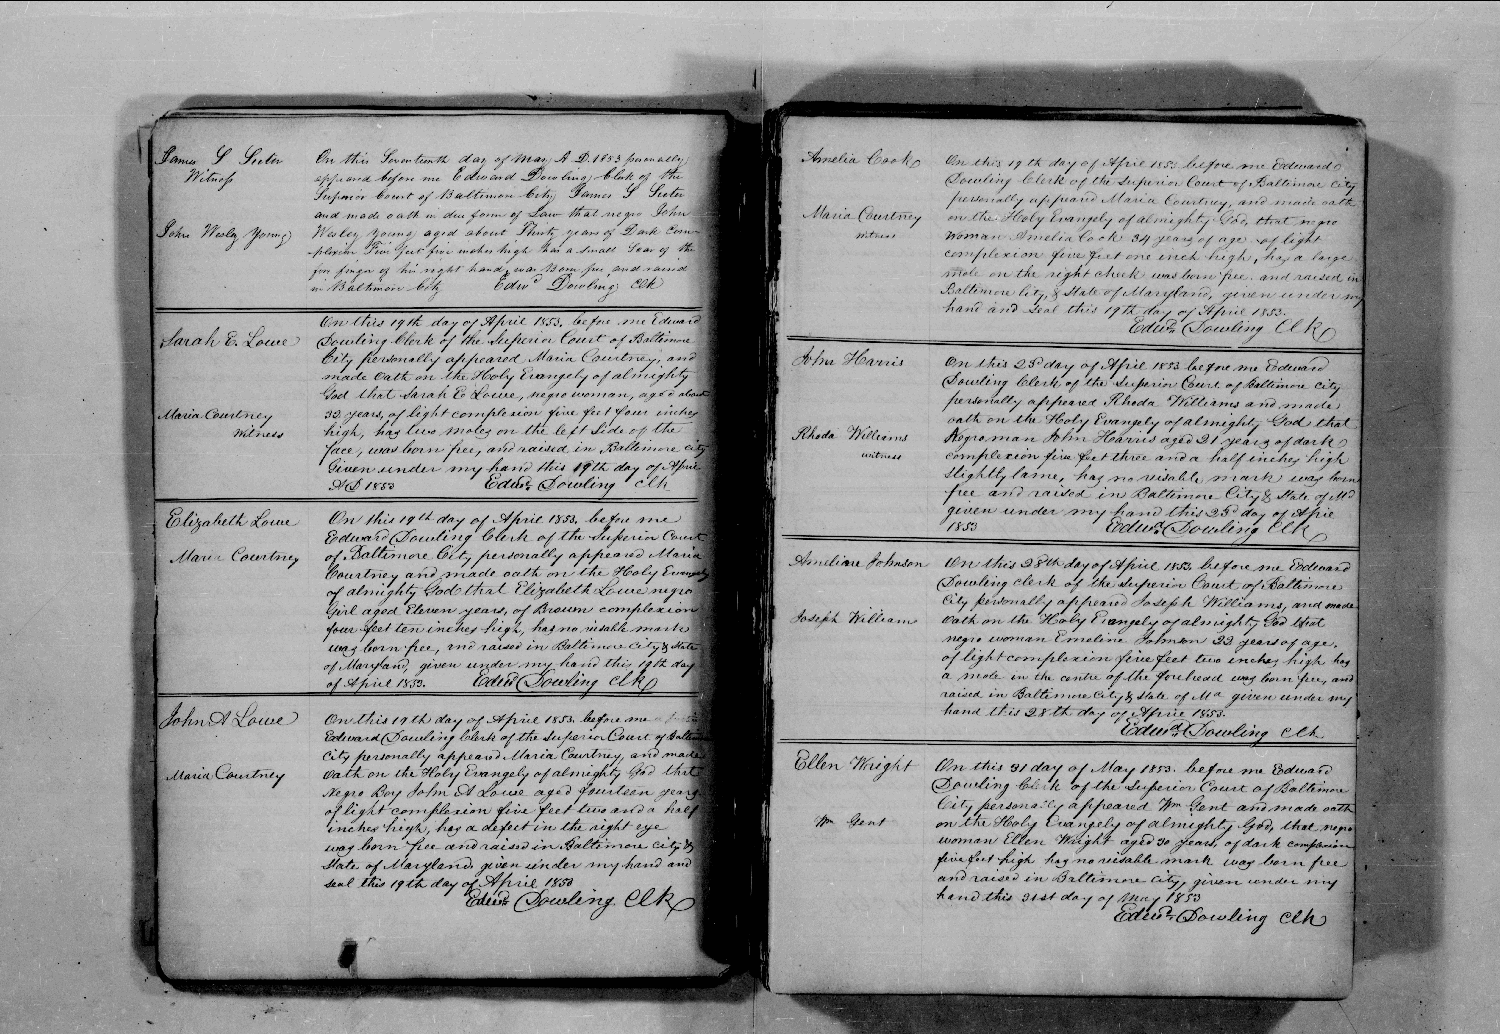 James S Suter
Witness
John Wesley Young
On this Seventeenth day of May A D. 1853 personally
appeared before me Edward Dowling Clerk of the
Superior Court of Baltimore City James S Suter
and made oath in due form of Law that negro John
Wesley Young aged about Thirty years of Dark Com-
-plexion Five feet five inches high has a small Scar of the
fore finger of his right hand, was Born free and raised
in Baltimore City Edwd Dowling Clk
Sarah E. Lowe
Maria Courtney
Witness
On this 19th day of April 1853. before me Edward
Dowling Clerk of the Superior Court of Baltimore
City personally appeared Maria Courtney, and
made oath on the Holy Evangely of almighty
God that Sarah E Lowe, negro woman, aged about
33 years, of light complexion five feet four inches
high, has two moles on the left side of the
face, was born free, and raised in Baltimore city
Given under my hand this 19th day of April
AD 1853 Edwd Dowling Clk
Elizabeth Lowe
Maria Courtney
On this 19th day of April 1853. before me
Edward Dowling Clerk of the Superior Court
of Baltimore City personally appeared Maria
Courtney and made oath on the Holy Evangely
of almighty God that Elizabeth Lowe negro
Girl aged Eleven years, of Brown complexion
four feet ten inches high, has no visable mark
was born free, and raised in Baltimore City & State
of Maryland, given under my hand this 19th day
of April 1853. Edwd Dowling Clk
John A Lowe
Maria Courtney
On this 19th day of April 1853. before me
Edward Dowling Clerk of the Superior Court of Baltimore
City personally appeared Maria Courtney, and made
oath on the Holy Evangely of almighty God that
Negro Boy John A Lowe aged fourteen years
of light complexion five feet two and a half
inches high, has a defect in the right eye
was born free and raised in Baltimore City &
State of Maryland given under my hand and
seal this 19th day of April 1853
Edwd Dowling Clk
Amelia Cook
Maria Courtney
witness
On this 19th day of April 1853 before me Edward
Dowling Clerk of the Superior Court of Baltimore City
personally appeared Maria Courtney, and made oath
on the Holy Evangely of almighty God, that negro
Woman Amelia Cook 34 years of age of light
complexion five feet one inch high, has a large
mole on the right cheek was born free and raised in
Baltimore City, & State of Maryland, given under my
hand and seal this 19th day of April 1853.
Edwd Dowling Clk
John Harris
Rhoda Williams
witness
On this 23d day of April 1853 before me Edward
Dowling Clerk of the Superior Court of Baltimore City
personally appeared Rhoda Williams and made
oath on the Holy Evangely of almighty God that
Negro man John Harris aged 21 years of dark
complexion five feet three and a half inches high
slightly lame, has no visable mark was born
free and raised in Baltimore City & State of Md
given under my hand this 23d day of April
1853 Edwd Dowling Clk
Ameliane Johnson
Joseph William
On this 28th day of April 1853. before me Edward
Dowling clerk of the Superior Court of Baltimore
City personally appeared Joseph Williams, and made
oath on the Holy Evangely of almighty God that
negro woman Emeline Johnson 23 years of age.
of light complexion five feet two inches high has
a mole in the centre of the forehead was born free, and
raised in Baltimore City & State of Md given under my
hand this 28th day of April 1853.
Edwd Dowling Clk
Ellen Wright
Wm Gent
On this 31 day of May 1853. before me Edward
Dowling Clerk of the Superior Court of Baltimore
City personally appeared Wm Gent and made oath
on the Holy Evangely of almighty God, that negro
woman Ellen Wright aged 30 years, of dark complexion
five feet high has no visable mark was born free
and raised in Baltimore City, given under my
hand this 31st day of May 1853
Edwd Dowling Clk